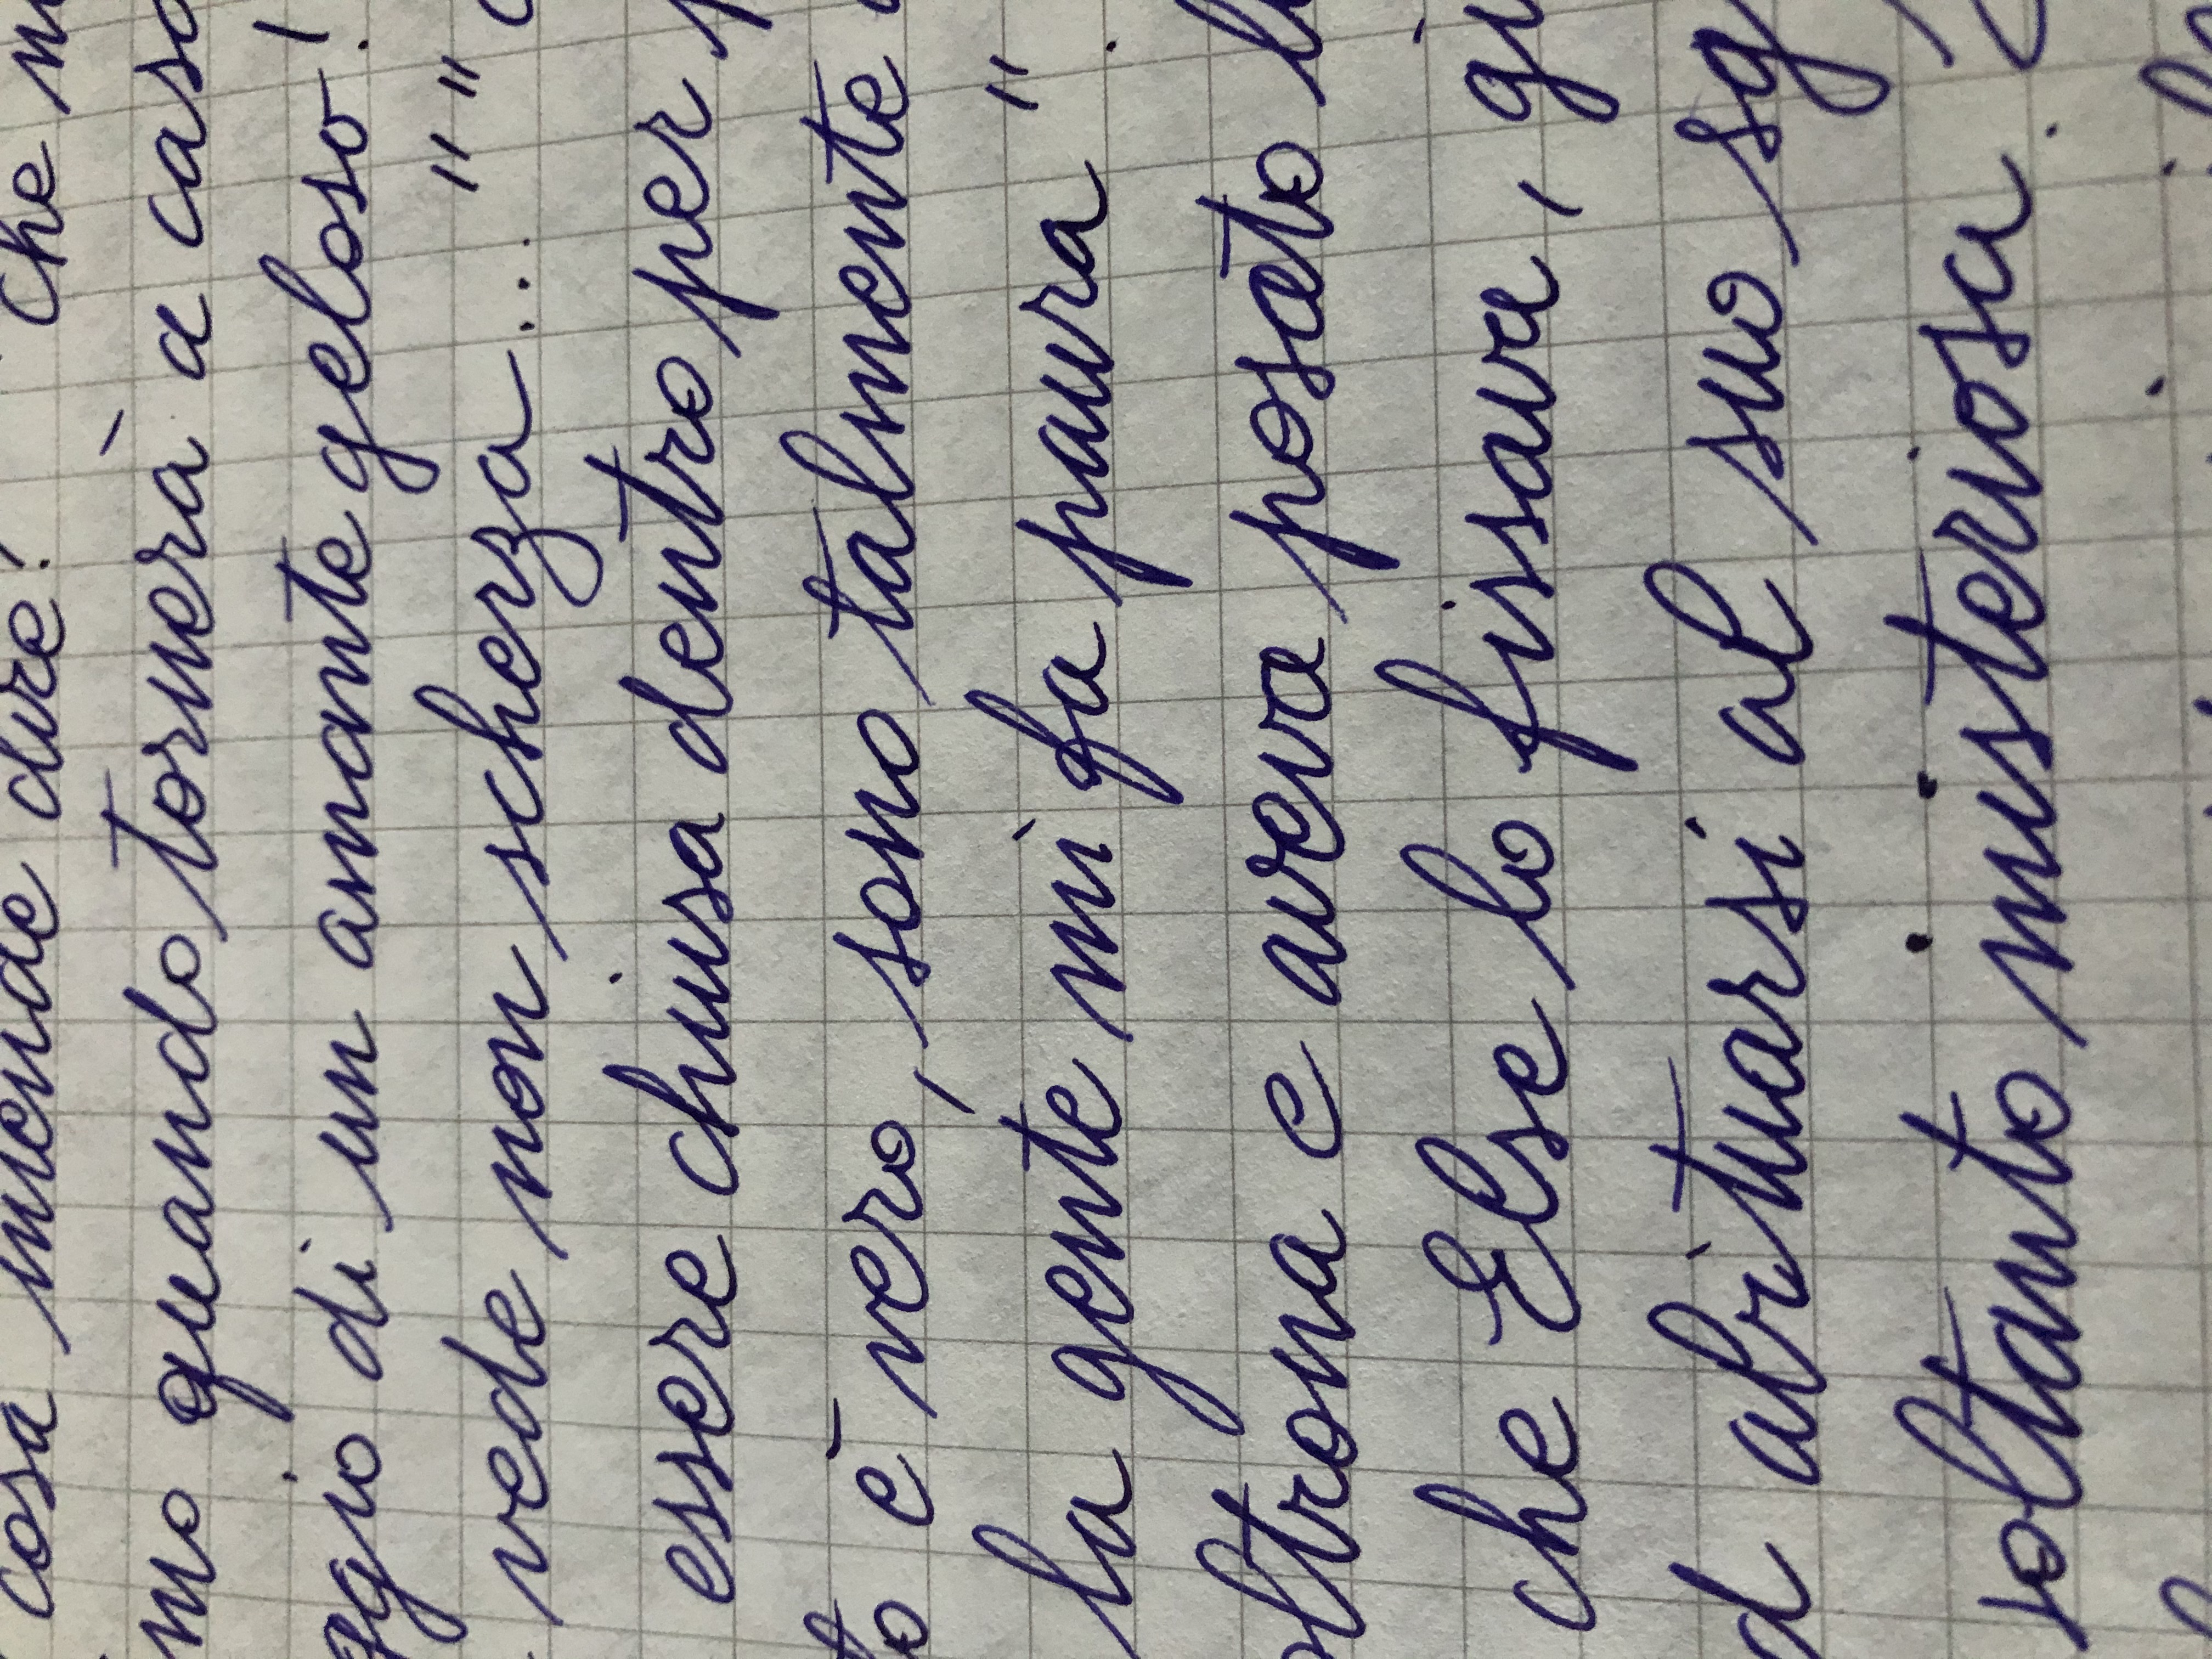 cosa intende dire? che
mo quando tornerà a casa
ggio di un amante geloso!
vede non scherza..." "
essere chiusa dentro per
to è vero, sono talmente
la gente mi fa paura".
oltrona e aveva posato
che Else lo fissava, gi
d abituarsi al suo sg
soltanto misteriosa.